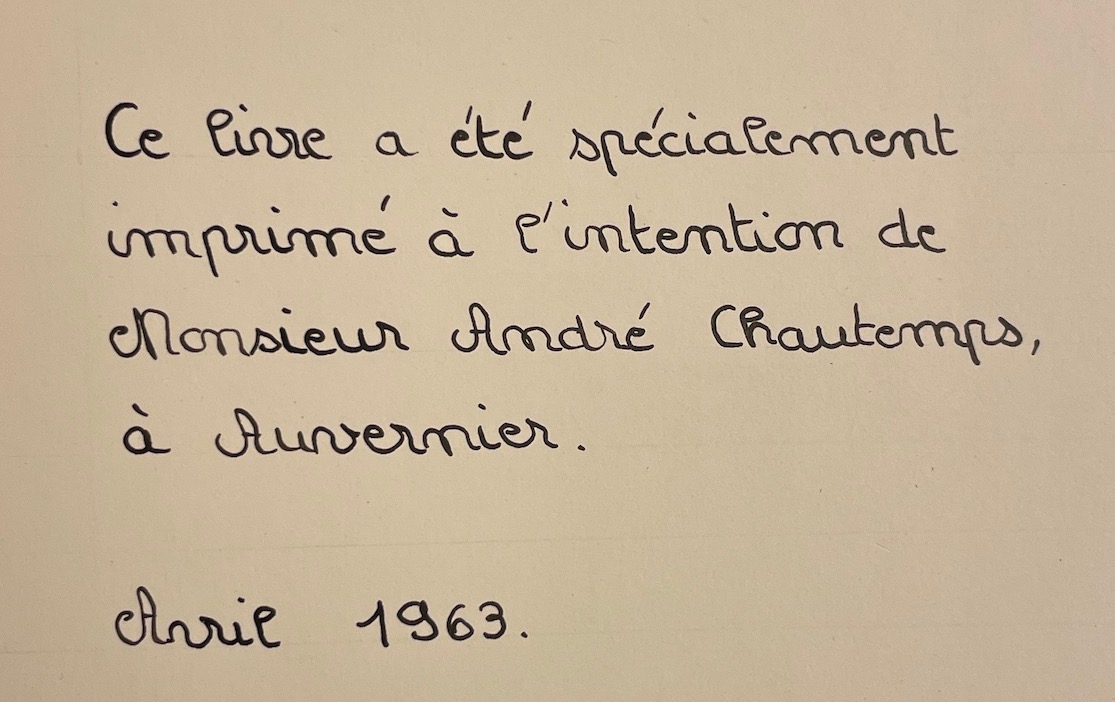 Ce livre a été spécialement
imprimé à l'intention de
Monsieur André Chautemps,
à Auvernier.
Avril 1963.